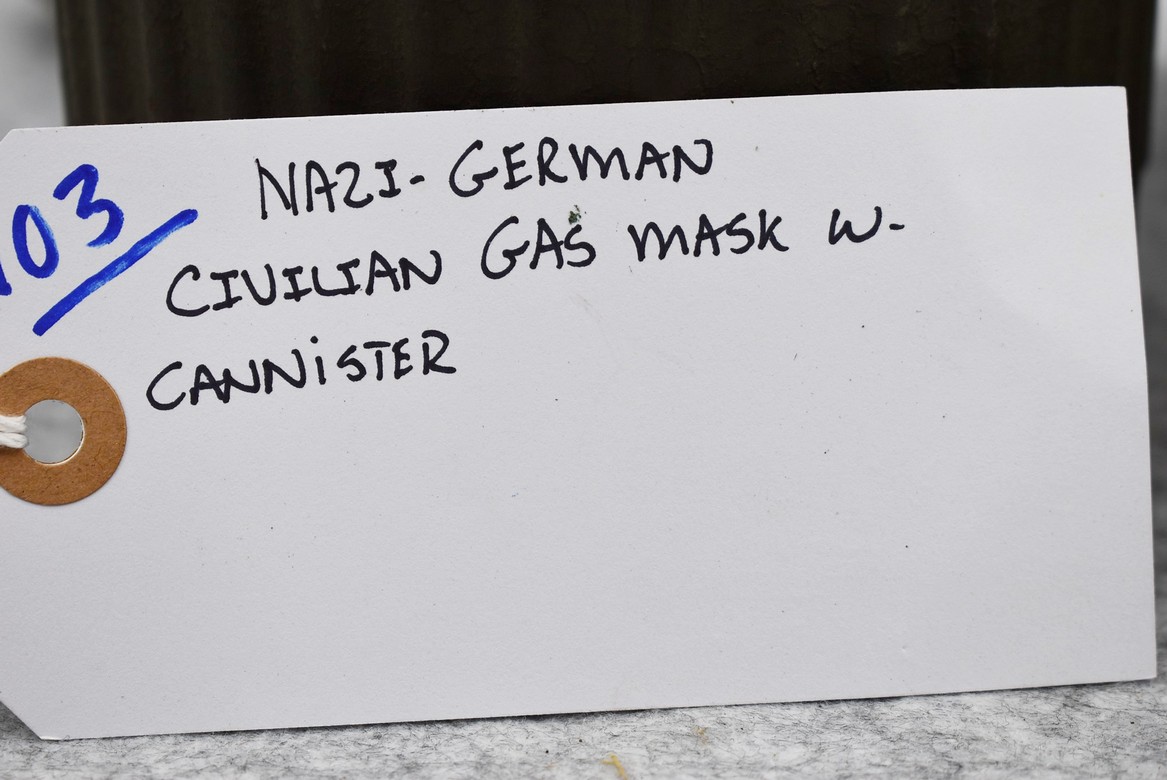 103
NAZI-GERMAN
CIVILIAN GAS MASK W-
CANNiSTER